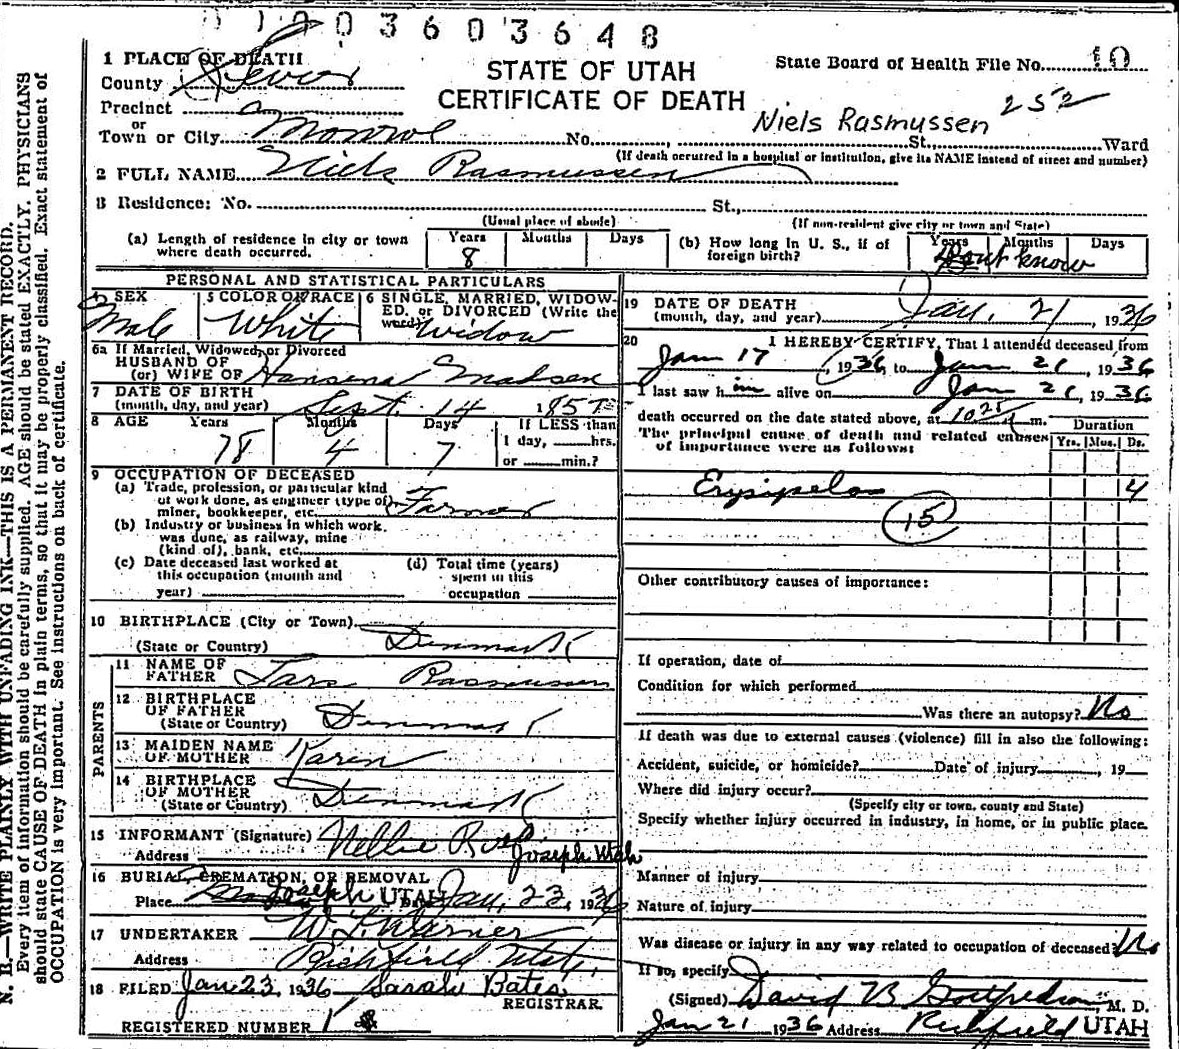 0 1 0 0 3 6 0 3 6 4 8
1 PLACE OF DEATH
County Sevier
STATE OF UTAH
CERTIFICATE OF DEATH
State Board of Health File No. 10
252
Precinct
or
Town or City Monroe No. , St. Ward
Niels Rasmussen
(If death occurred in a hospital or institution, give its NAME instead of street and number)
2 FULL NAME Niels Rasmussen
3 Residence: No. St.,
(Usual place of abode) (If non-resident give city or town and State)
(a) Length of residence in city or town where death occurred. Years 8 Months Days
(b) How long in U. S., if of foreign birth? Years Months Days Dont know
PERSONAL AND STATISTICAL PARTICULARS
4 SEX Male
5 COLOR OR RACE White
6 SINGLE, MARRIED, WIDOWED, or DIVORCED (Write the word) Widow
6a If Married, Widowed, or Divorced
HUSBAND OF
(or) WIFE OF Hansena Madsen
7 DATE OF BIRTH
(month, day, and year) Sept. 14 1857
8 AGE Years 78 Months 4 Days 7 If LESS than 1 day, hrs. or min.?
9 OCCUPATION OF DECEASED
(a) Trade, profession, or particular kind of work done, as engineer (type of) miner, bookkeeper, etc. Farmer
(b) Industry or business in which work was done, as railway, mine (kind of), bank, etc.
(c) Date deceased last worked at this occupation (month and year)
(d) Total time (years) spent in this occupation
10 BIRTHPLACE (City or Town)
(State or Country) Denmark
PARENTS
11 NAME OF FATHER Lars Rasmussen
12 BIRTHPLACE OF FATHER
(State or Country) Denmark
13 MAIDEN NAME OF MOTHER Karen
14 BIRTHPLACE OF MOTHER
(State or Country) Denmark
15 INFORMANT (Signature) Nellie
Address Joseph Utah
16 BURIAL, CREMATION, OR REMOVAL
Place Joseph UTAH Date Jan. 23, 1936
17 UNDERTAKER W. L. Warner
Address Richfield Utah.
18 FILED Jan 23, 1936 Sarah Bates
REGISTRAR.
REGISTERED NUMBER 1
19 DATE OF DEATH
(month, day, and year) Jan. 21, 1936
20 I HEREBY CERTIFY, That I attended deceased from
Jan 17, 1936, to Jan 21, 1936
I last saw him alive on Jan 21, 1936
death occurred on the date stated above, at 10 25 m.
The principal cause of death and related causes of importance were as follows:
Duration
Yrs. Mos. Ds.
Erysipelas 4
15
Other contributory causes of importance:
If operation, date of
Condition for which performed
Was there an autopsy? No
If death was due to external causes (violence) fill in also the following:
Accident, suicide, or homicide? Date of injury , 19
Where did injury occur?
(Specify city or town, county and State)
Specify whether injury occurred in industry, in home, or in public place.
Manner of injury
Nature of injury
Was disease or injury in any way related to occupation of deceased? No
If so, specify
(Signed) David B Gottfredson, M. D.
Jan 21 1936 Address Richfield UTAH
N. B.—WRITE PLAINLY WITH UNFADING INK—THIS IS A PERMANENT RECORD.
Every item of information should be carefully supplied. AGE should be stated EXACTLY. PHYSICIANS
should state CAUSE OF DEATH in plain terms, so that it may be properly classified. Exact statement of
OCCUPATION is very important. See instructions on back of certificate.